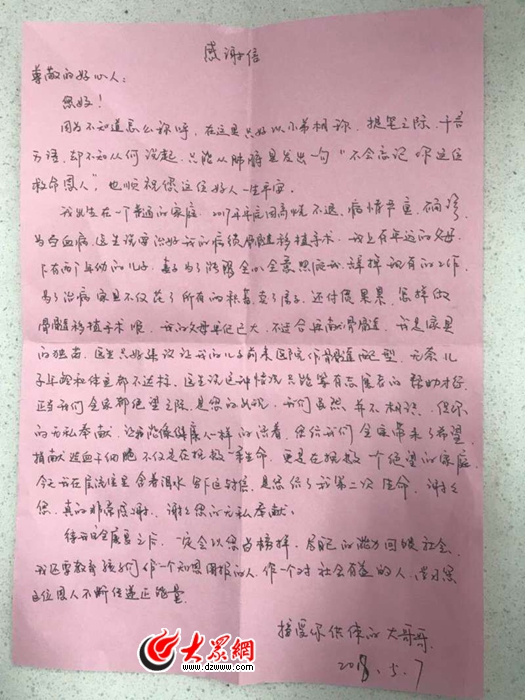 感谢信
尊敬的好心人：
您好！
因为不知道怎么称呼，在这里只好以小弟相称，提笔之际，千言
万语，却不知从何说起，只能从肺腑里发出一句“不会忘记你这位
救命恩人”，也顺祝您这位好人一生平安。
我出生在一个普通的家庭，2017年年底因高烧不退，病情严重，确诊
为白血病，医生说要治好我的病须骨髓移植手术。我上有年迈的父母
下有两个年幼的儿子，妻子为了能够全心全意照顾我辞掉现有的工作
为了治病家里不仅花了所有的积蓄，卖了房子，还付债累累，怎样做
骨髓移植手术呢，我的父母年纪已大，不适合再献骨髓，我是家里
的独苗，医生只好建议让我的儿子前来医院作骨髓配型，无奈儿
子年龄和体重都不达标，医生说这种情况只能等有志愿者的帮助才行
正当我们全家都绝望之际，是您的出现，我们虽然并不相识，但你
的无私奉献，让我能像健康人一样的活着，您给我们全家带来了希望
捐献造血干细胞不仅是在拯救一条生命，更是在拯救一个绝望的家庭
今天我在层流室里含着泪水写下这封信，是您给了我第二次生命，谢谢
您，真的非常感谢，谢谢您的无私奉献。
待我康复之后，一定会以您为榜样，尽己的能力回馈社会，
我还要教育孩子们作一个知恩图报的人，作一个对社会有益的人，
这位恩人不断传递正能量
接受你供体的大哥哥
2018.5.7
大众网
www.dzwww.com